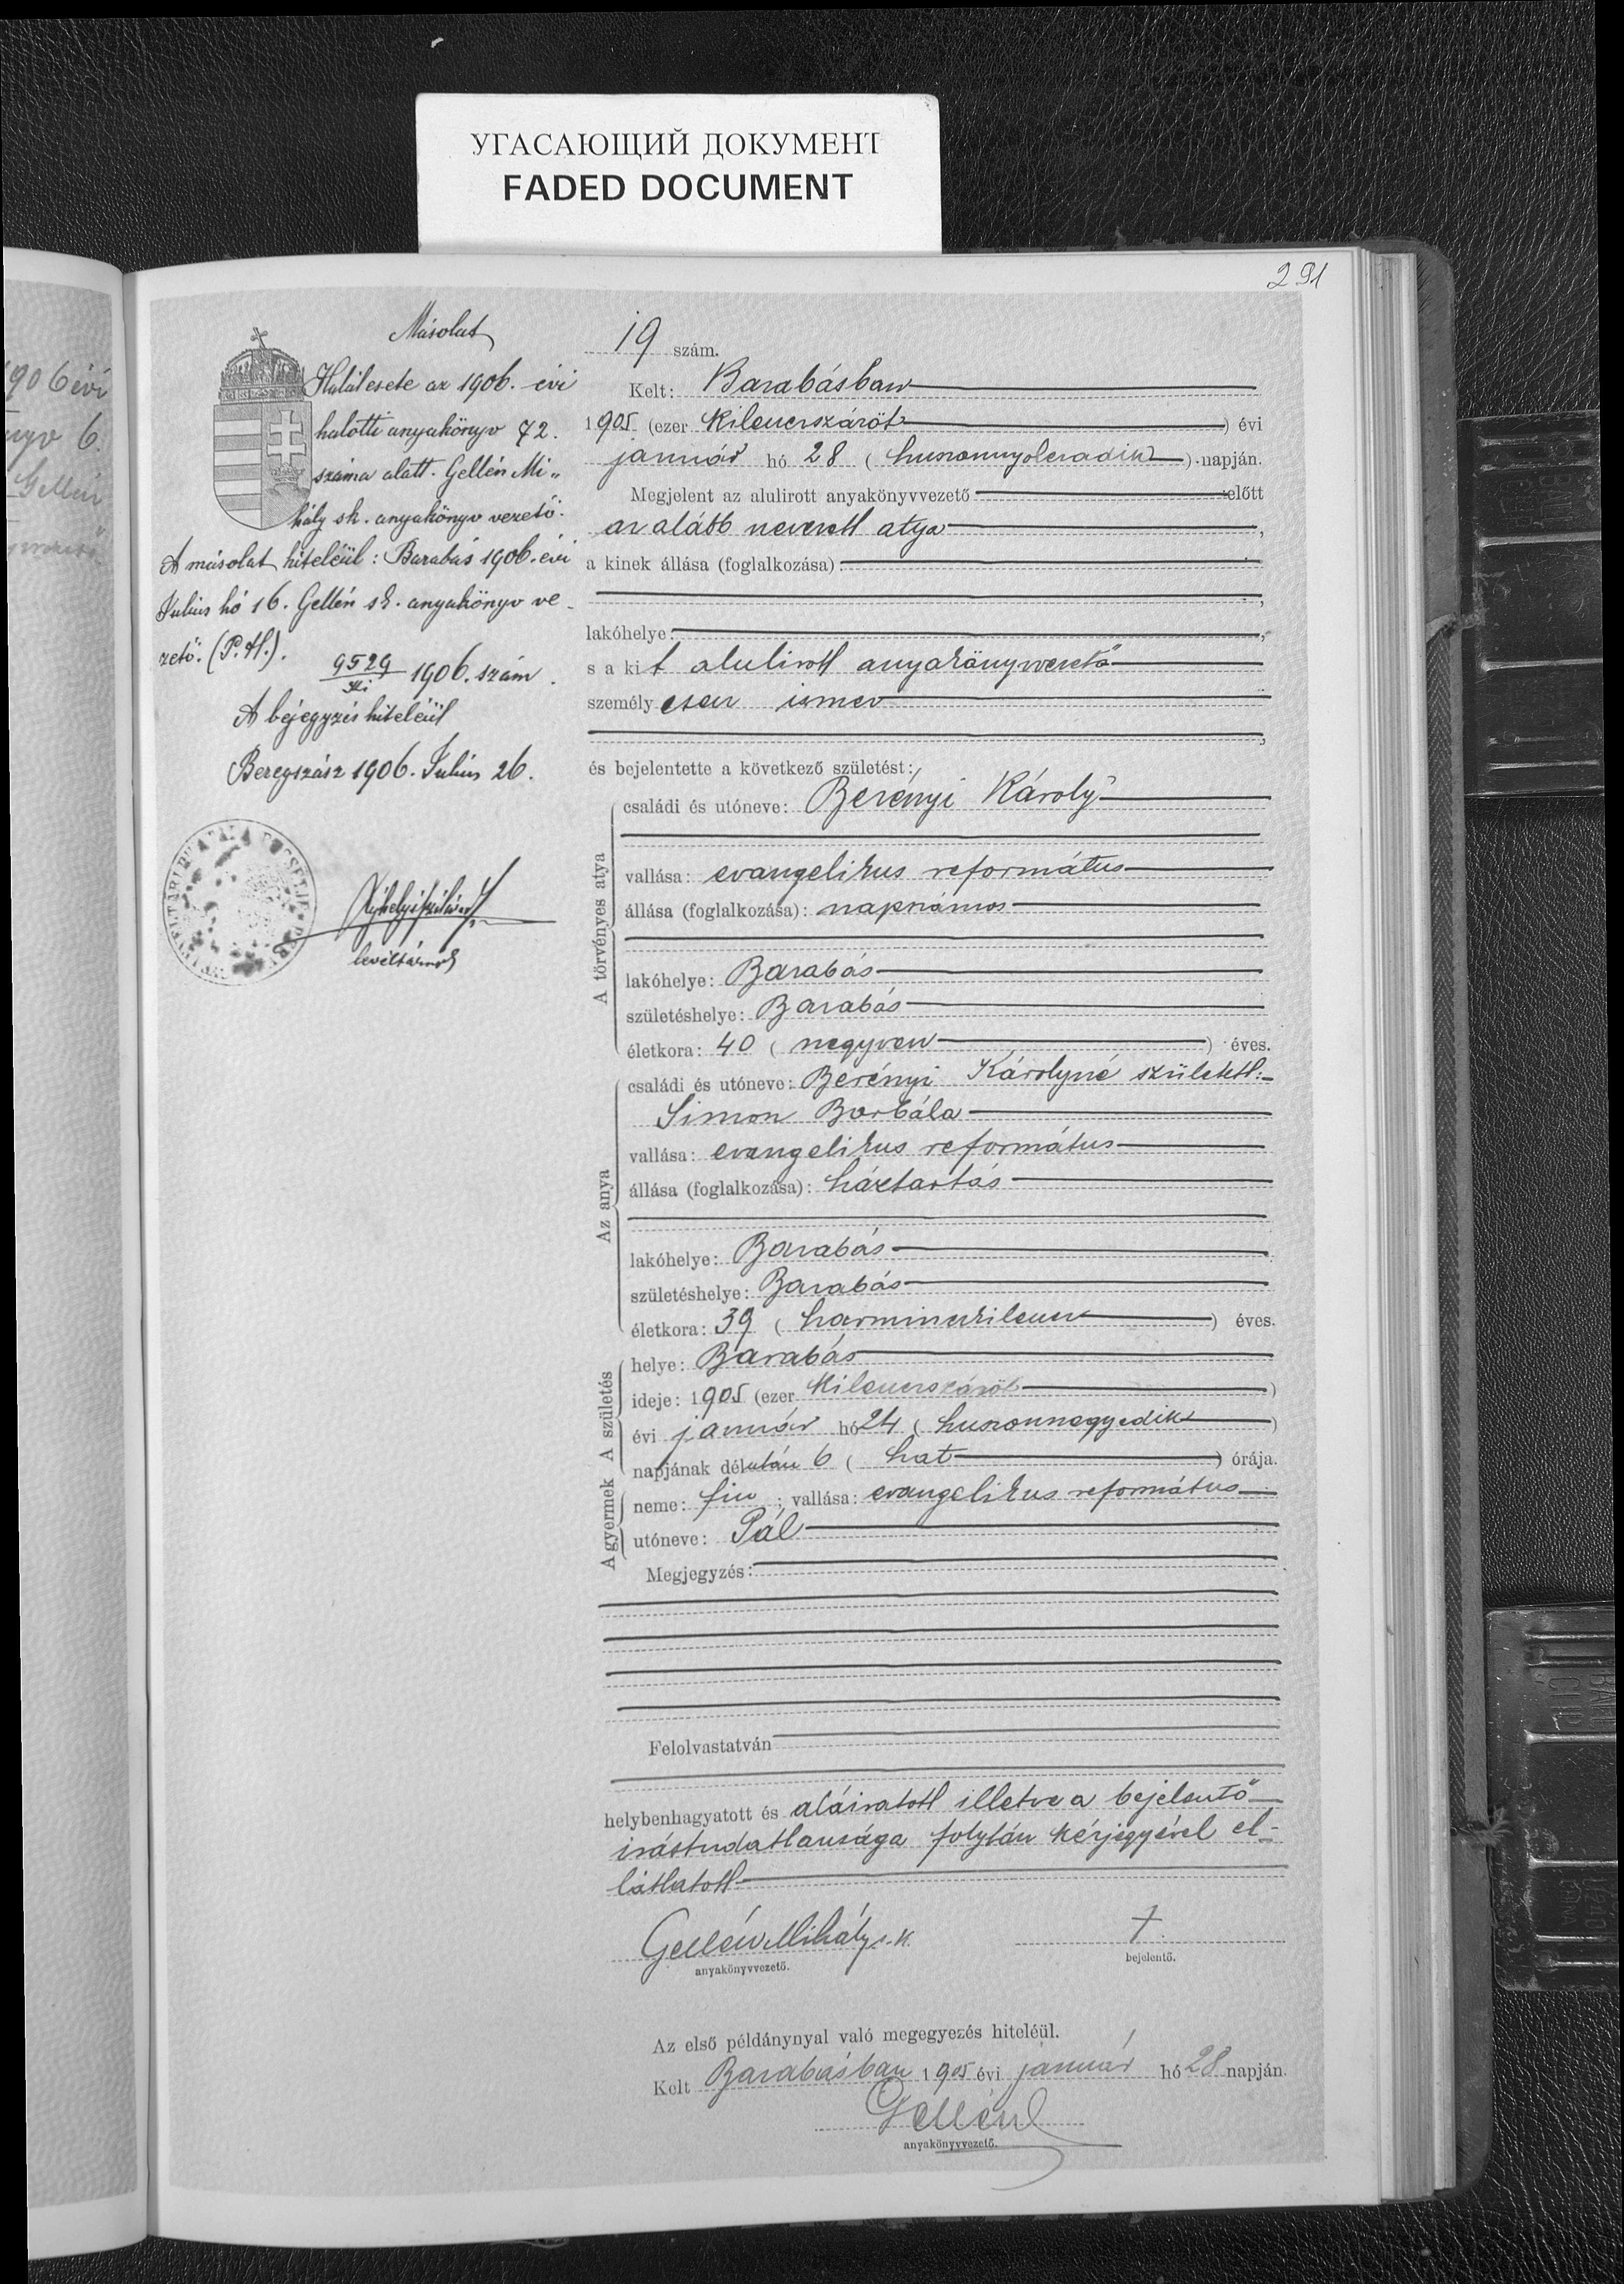 УГАСАЮЩИЙ ДОКУМЕНТ
FADED DOCUMENT
291
906 évi
6.
Gellén
Másolat
Halálesete az 1906. évi
halotti anyakönyv 72.
száma alatt. Gellén Mi„
hály sk. anyakönyv vezető.
A másolat hiteléül: Barabás 1906. évi
Julius hó 16. Gellén sk. anyakönyv ve_
zető. (P. H.).
9529/ki 1906. szám.
A bejegyzés hiteléül
Beregszász 1906. Julius 26.
levéltárnok
19 szám.
Kelt: Barabásban
1905 (ezer kilencszázöt) évi
január hó 28 (huszonnyolczadik) napján.
Megjelent az alulirott anyakönyvvezető előtt
az alább nevezett atya,
a kinek állása (foglalkozása):
lakóhelye:
s a kit alulirott anyakönyvvezető
személyesen ismer
és bejelentette a következő születést:
A törvényes atya
családi és utóneve: Berényi Károly
vallása: evangelikus református
állása (foglalkozása): napszámos
lakóhelye: Barabás
születéshelye: Barabás
életkora: 40 (negyven) éves.
Az anya
családi és utóneve: Berényi Károlyné született:
Simon Borbála
vallása: evangelikus református
állása (foglalkozása): háztartás
lakóhelye: Barabás
születéshelye: Barabás
életkora: 39 (harminckilenc) éves.
A születés
helye: Barabás
ideje: 1905 (ezer kilencszázöt)
évi január hó 24 (huszonnegyedik)
napjának délután 6 (hat) órája.
A gyermek
neme: fiu; vallása: evangelikus református
utóneve: Pál
Megjegyzés:
Felolvastatván
helybenhagyatott és aláiratott illetve a bejelentő
irástudatlansága folytán kézjegyével el-
láttatott
Gellén Mihály s. k.
anyakönyvvezető.
+
bejelentő.
Az első példánynyal való megegyezés hiteléül.
Kelt Barabásban 1905 évi január hó 28 napján.
Gellén
anyakönyvvezető.